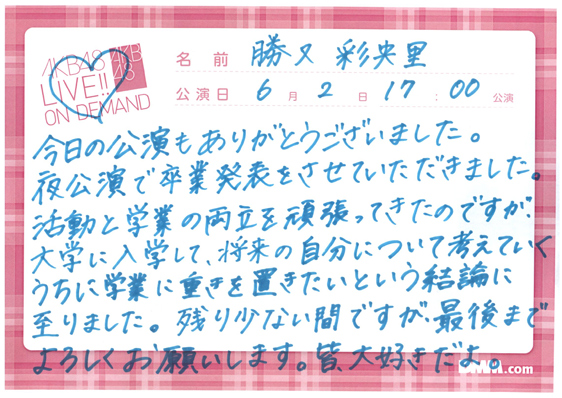 AKB48
LIVE!!
ON DEMAND
AKB
48
名前 勝又 彩央里
公演日 6月2日 17:00 公演
今日の公演もありがとうございました。
夜公演で卒業発表をさせていただきました。
活動と学業の両立を頑張ってきたのですが、
大学に入学して、将来の自分について考えていく
うちに学業に重きを置きたいという結論に
至りました。残り少ない間ですが、最後まで
よろしくお願いします。皆、大好きだよ。
DMM.com